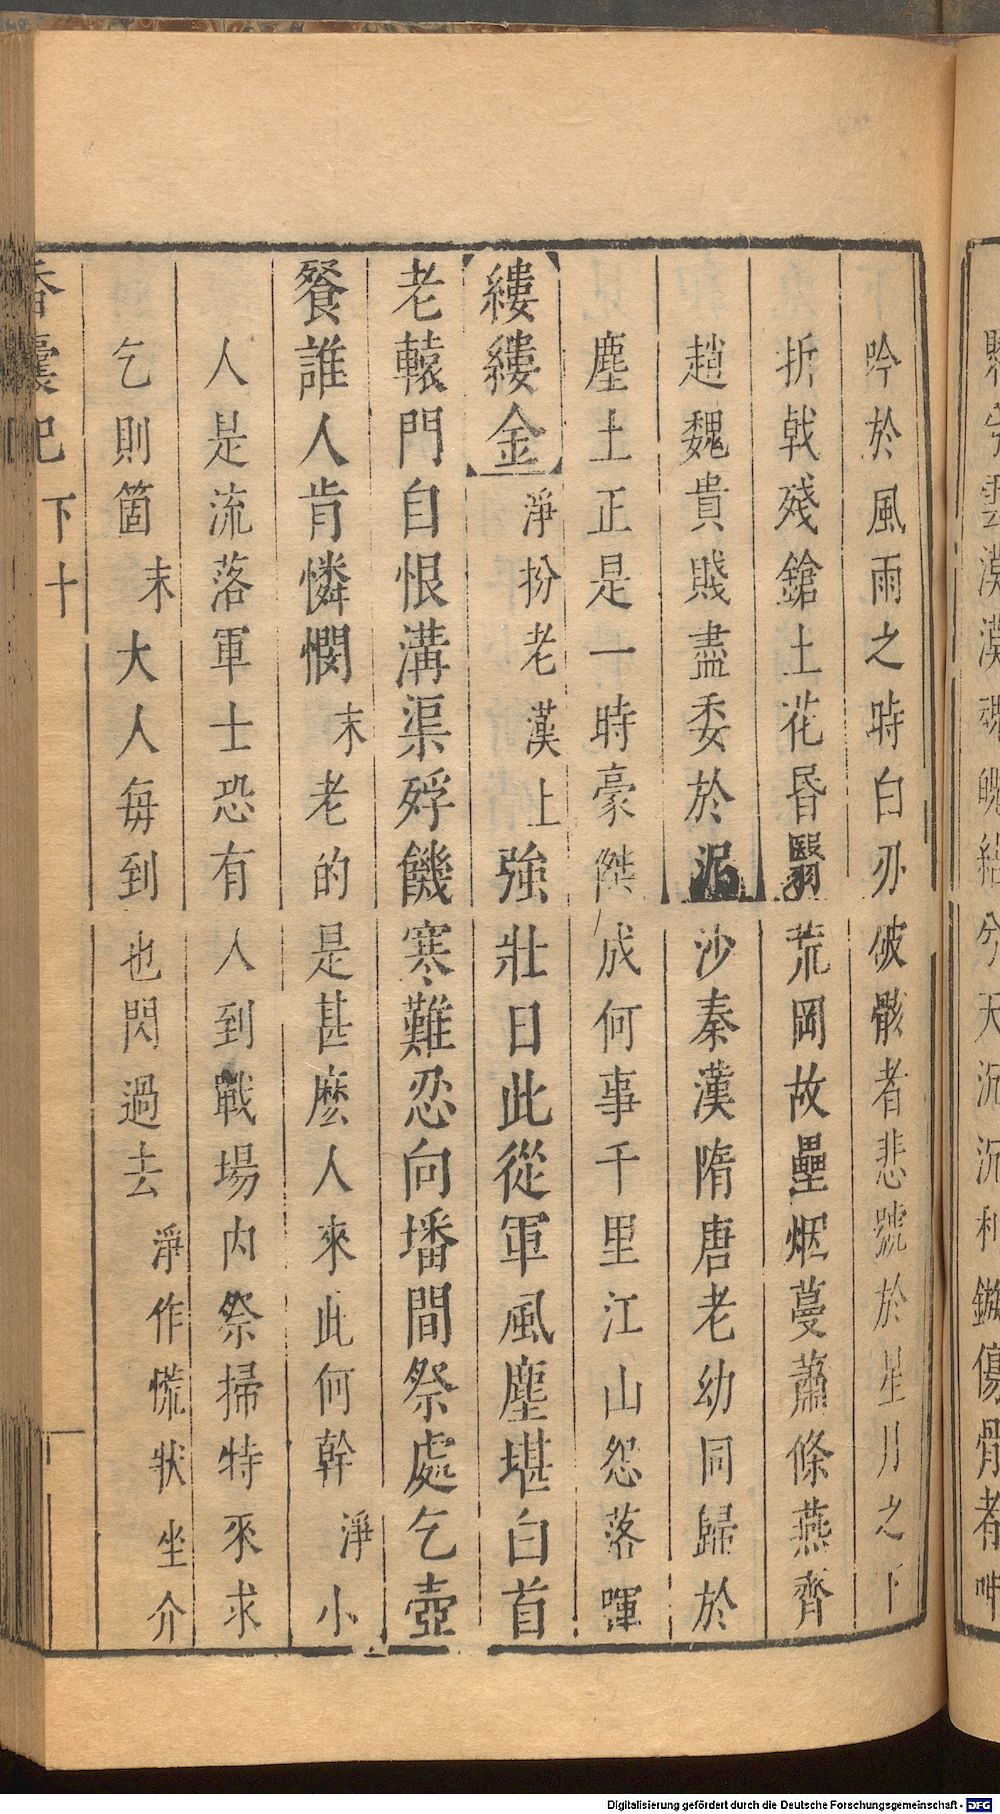 吟於風雨之時白刃破骸者悲號於星月之下
折戟殘鎗土花昏翳荒岡故壘烟蔓蕭條燕齊
趙魏貴賤盡委於泥沙秦漢隋唐老幼同歸於
塵土正是一時豪傑成何事千里江山怨落暉
縷縷金淨扮老漢上強壯日此從軍風塵堪白首
老轅門自恨溝渠殍饑寒難忍向墦間祭處乞壺
餐誰人肯憐憫末老的是甚麽人來此何幹淨小
人是流落軍士恐有人到戰場内祭掃特來求
乞則箇末大人每到也閃過去淨作慌狀坐介
香囊記 下十
Digitalisierung gefördert durch die Deutsche Forschungsgemeinschaft - DFG